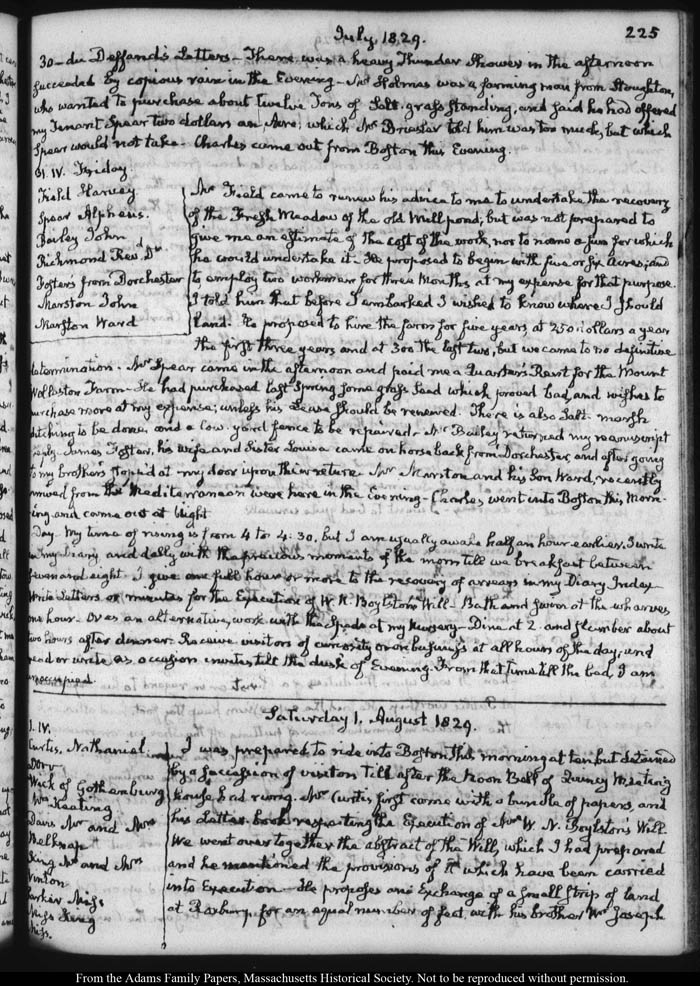 July 1829.
225
30 – du Deffand's Letters – There was a heavy Thunder Shower in the afternoon
succeeded by copious rain in the Evening – Mr Holmes was a farming man from Stoughton,
who wanted to purchase about twelve Tons of Salt-grass standing, and said he had offered
my Tenant Spear two dollars an Acre; which Mr Brewster told him was too much, but which
Spear would not take – Charles came out from Boston this Evening.
31. IV. Friday
Field Harvey
Spear Alpheus.
Bailey John
Richmond Revd Dr
Fosters from Dorchester
Marston John
Marston Ward
Mr Field came to renew his advice to me to undertake the recovery
of the Fresh Meadow of the old Mill pond; but was not prepared to
give me an estimate of the cost of the work, nor to name a for which
he would undertake it – He proposed to begin with five or six Acres; and
to employ two workmen for three Months, at my expense for that purpose.
I told him that before I embarked I wished to know where I should
land. He proposed to hire the farm for five years, at 250 dollars a year
the first three years and at 300 the last two, but we came to no definitive
determination. Mr Spear came in the afternoon and paid me a Quarter's Rent for the Mount
Wollaston Farm – He had purchased last Spring some grass seed which proved bad, and wishes to
purchase more at my expense; unless his Lease should be renewed. There is also Salt-marsh
ditching to be done, and a low-yard fence to be repaired – Mr Bailey returned my manuscript
reply. James Foster, his wife and Sister Louisa came on horseback from Dorchester and after going
to my brother's stopp'd at my door upon their return. Mr Marston and his Son Ward, recently
arrived from the Mediterranean were here in the Evening – Charles went into Boston this Morn-
ing and came out at Night
Day – My time of rising is from 4 to 4:30, but I am usually awake half an hour earlier. I write
in my Diary and dally with the precious moments of the morn till we breakfast between
seven and eight. I give one full hour or more to the recovery of arrears in my Diary Index
Write Letters or minutes for the Execution of W. N. Boylston's Will – Bathe and swim at the wharves
one hour – Or as an alternative, work with the Spade at my Nursery – Dine at 2. and slumber about
two hours after dinner – Receive visitors of curiosity or on business at all hours of the day, and
read or write as occasion invites till the dusk of Evening. From that time till the bed, I am
unoccupied.
Saturday 1. August 1829.
1. IV.
Curtis, Nathaniel
Dorr
Wick of Gothemburg
Wm Keating
Davis Mr and Mrs
Belknap
King Mr and Mrs
Vinton
Parker Miss
Miss King
I was prepared to ride into Boston this morning at ten but detained
by a succession of visitors till after the Noon Bell of Quincy Meeting
house had rung. Mr Curtis first came with a bundle of papers, and
his Letter-book respecting the Execution of Mr W. N. Boylston's Will.
We went over together the abstract of the Will, which I had prepared
and he mentioned the provisions of it which have been carried
into Execution – He proposes an Exchange of a Small Strip of land
at Roxbury for an equal number of feet, with his brother Mr Joseph
From the Adams Family Papers, Massachusetts Historical Society. Not to be reproduced without permission.